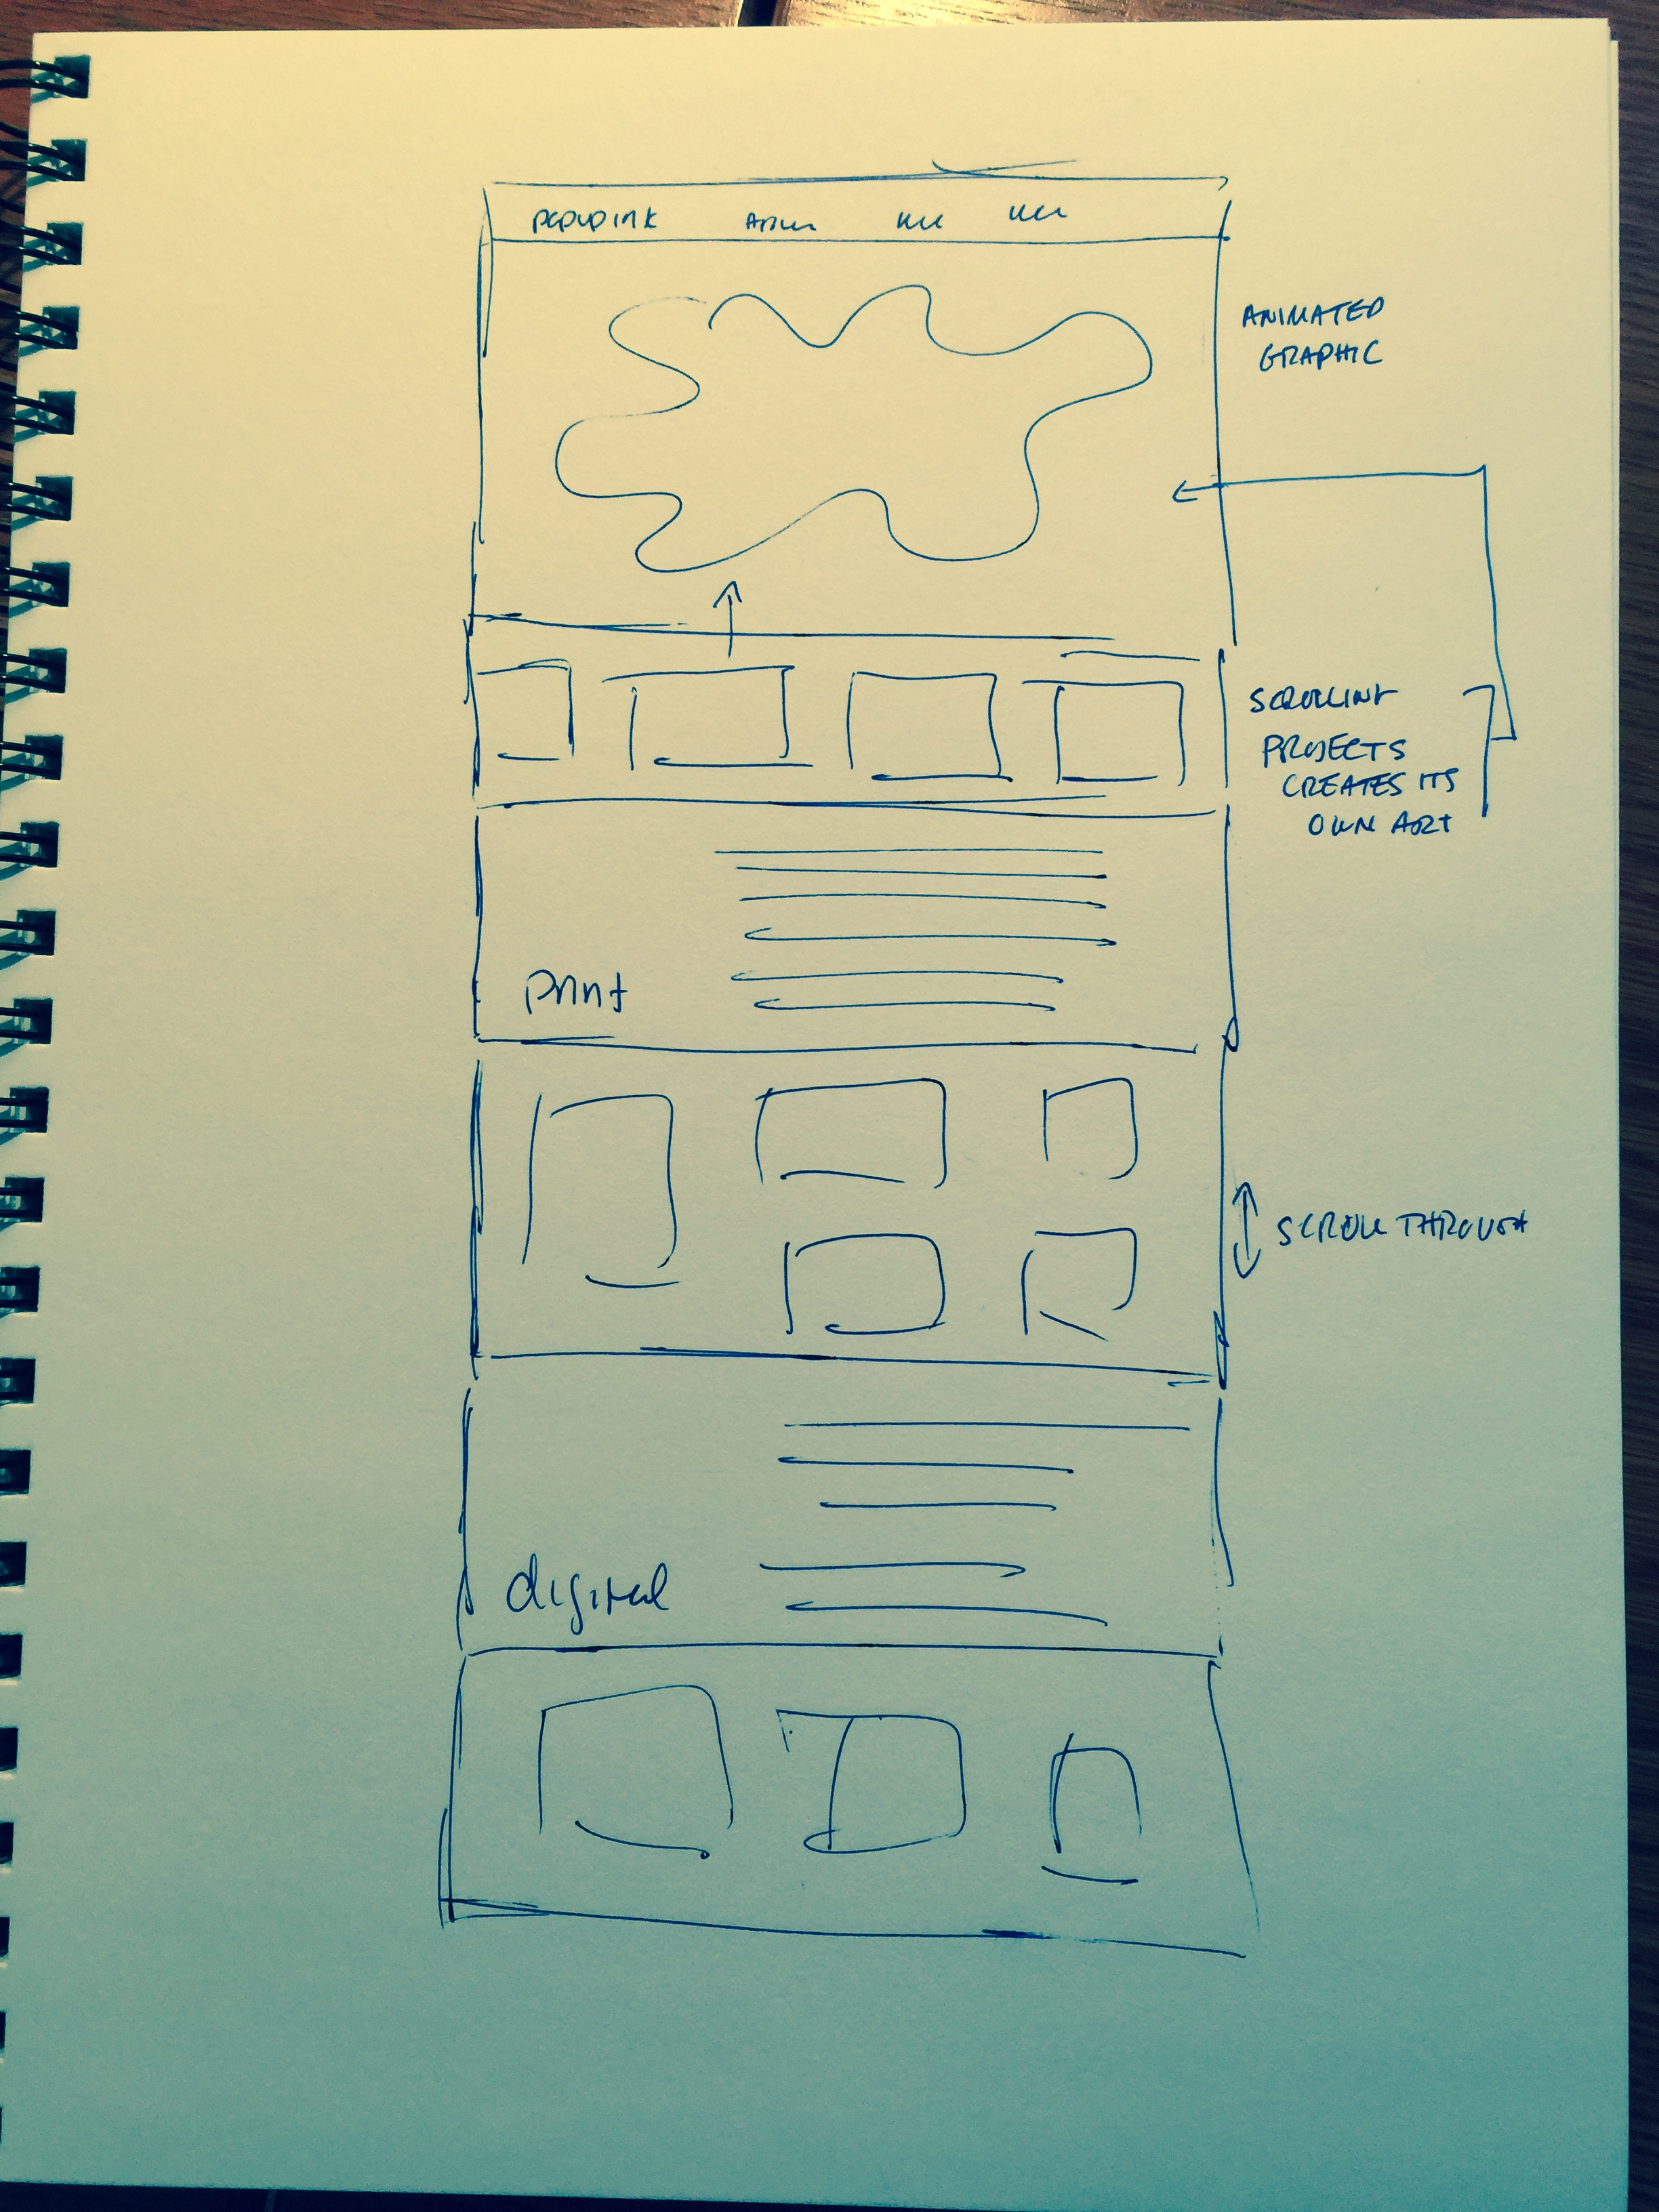 ANIMATED
GRAPHIC
SCROLLING
PROJECTS
CREATES ITS
OWN ART
print
SCROLL THROUGH
digital